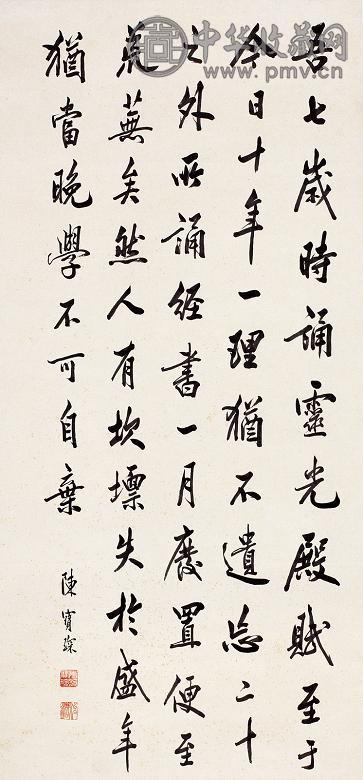 吾七歲時誦靈光殿賦至于
今日十年一理猶不遺忘二十
之外所誦經書一月廢置便至
荒蕪矣然人有坎壈失於盛年
猶當晚學不可自棄
陳寶琛
中华收藏网
www.pmv.cn